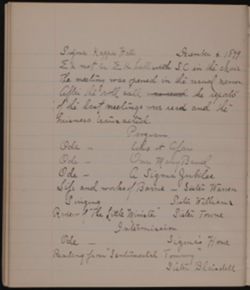 Sigma Kappa Hall December 2, 1899
ΣK met in ΣK hall with S.C. in the chair
The meeting was opened in the usual manner
After the roll call the reports
of the last meetings were read and the
business transacted.
Program
Ode -
Ode - Our Mary
Ode - A Sigma Jubilee
Life and works of Barrie - Sister Warren
Singing Sister Williams
Review of "The Little Minister" Sister Towne
Intermission
Ode - Sigma's
Reading from "Sentimental Tommy"
Sister Blaisdell